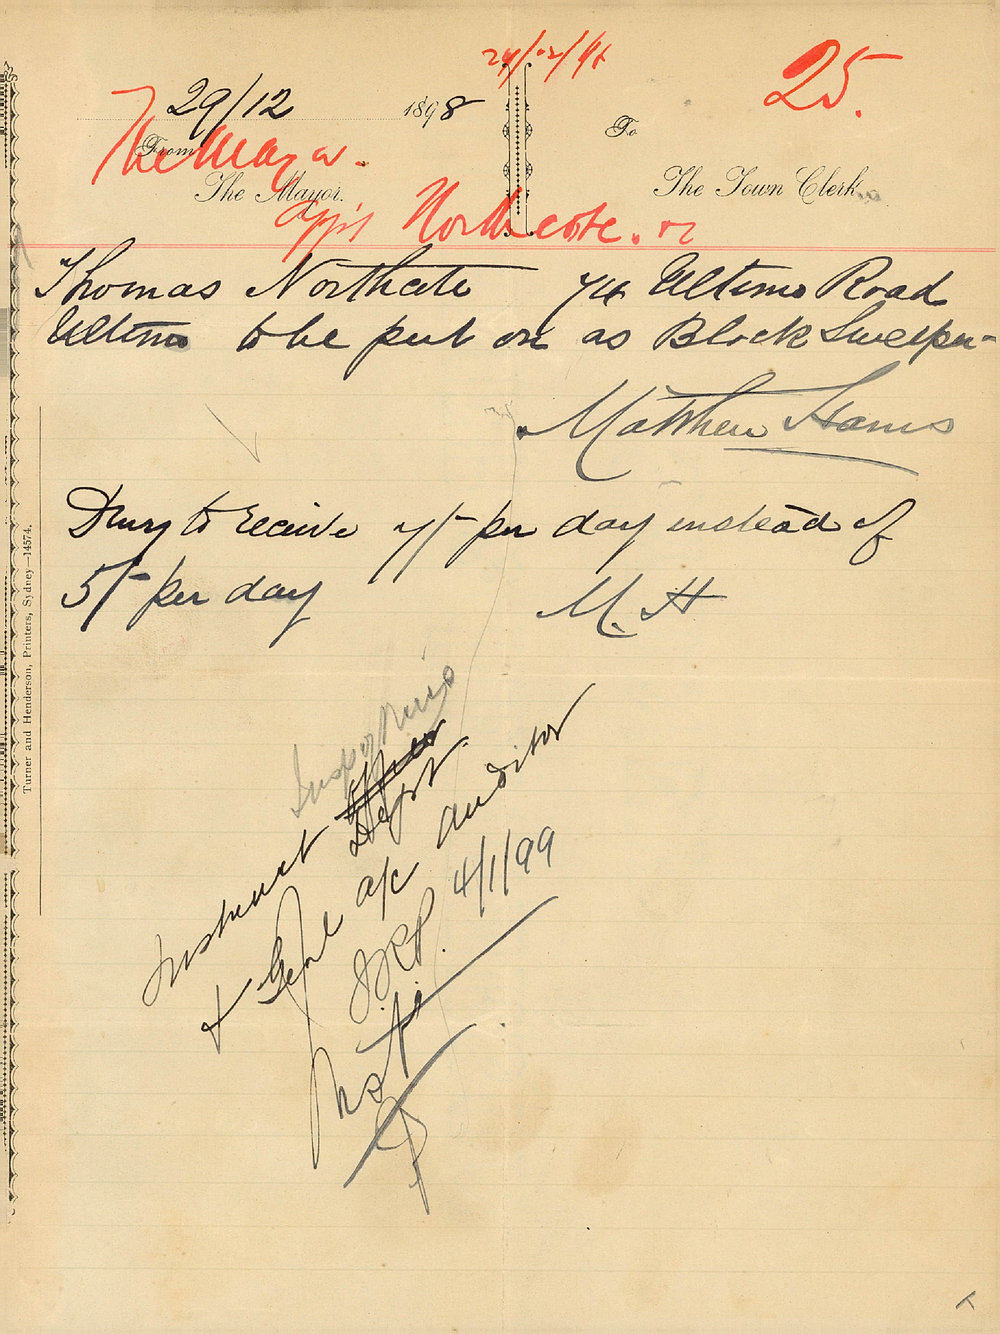 25.
29/12 1898
From
The Mayor.
The Mayor.
To
The Town Clerk
Northcote.
Thomas Northcote 74 Ultimo Road
Ultimo to be put on as Block Sweeper
Matthew Harris
Drury to receive 7/- per day instead of
5/- per day
M. H
Instruct Dept.
& Genl a/c auditor
4/1/99
Turner and Henderson, Printers, Sydney—14574.